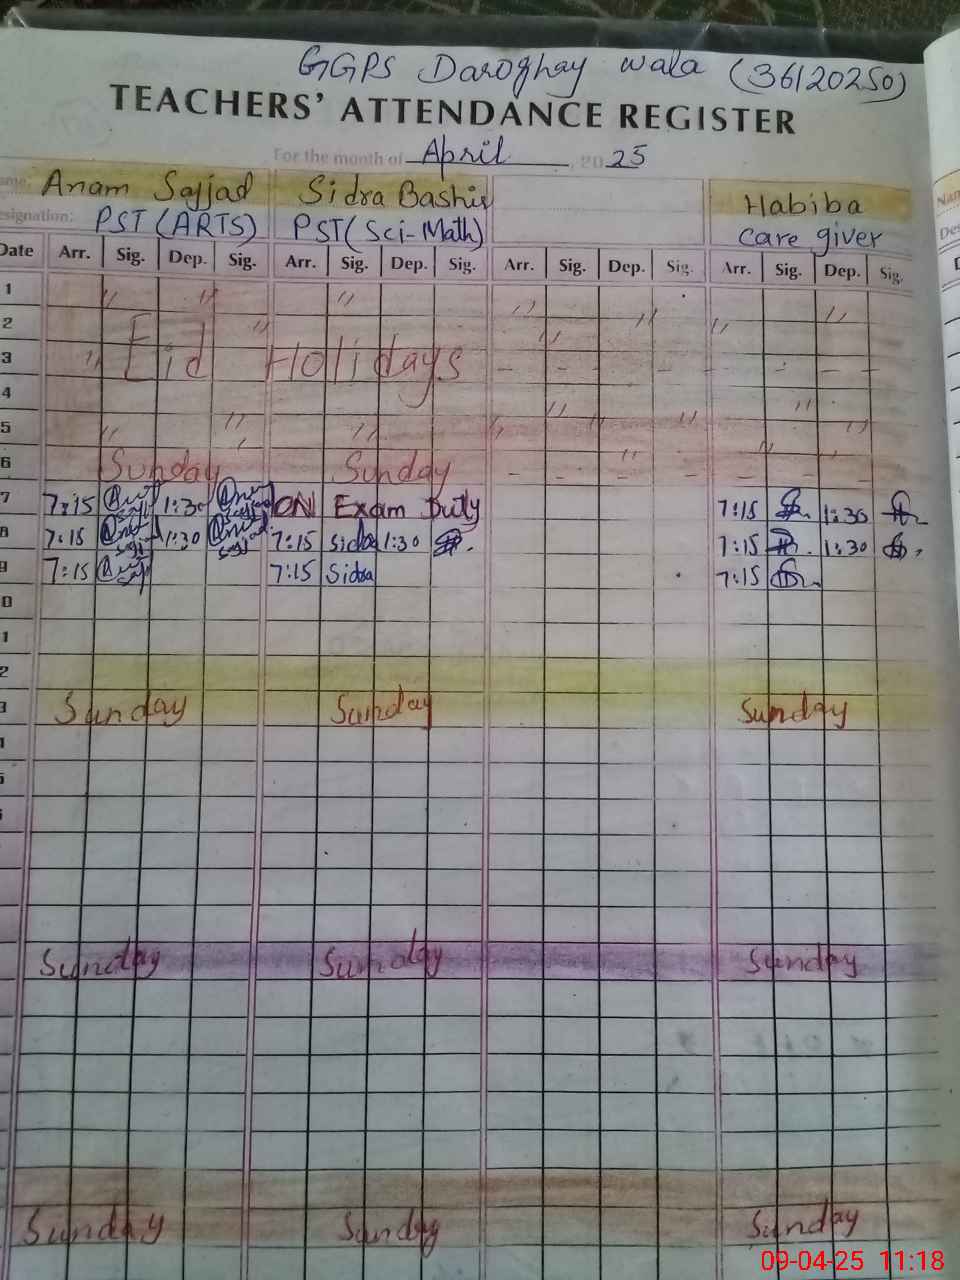 GGPS Daroghay wala (36120250)
TEACHERS' ATTENDANCE REGISTER
For the month of April, 2025
ame: Anam Sajjad Sidra Bashir Habiba
esignation: PST (ARTS) PST (Sci-Math) care giver
Date Arr. Sig. Dep. Sig. Arr. Sig. Dep. Sig. Arr. Sig. Dep. Sig. Arr. Sig. Dep. Sig.
1 " " "
2 " " " " "
3 " Eid Holidays
4 " "
5 " " " " " " "
6 Sunday Sunday "
7 7:15 1:30 ON Exam Duty 7:15 1:30
8 7:15 1:30 7:15 Sidra 1:30 7:15 1:30
9 7:15 7:15 Sidra 7:15
0
1
2
3 Sunday Sunday Sunday
Sunday Sunday Sunday
Sunday Sunday Sunday
Nam
Des
09-04-25 11:18